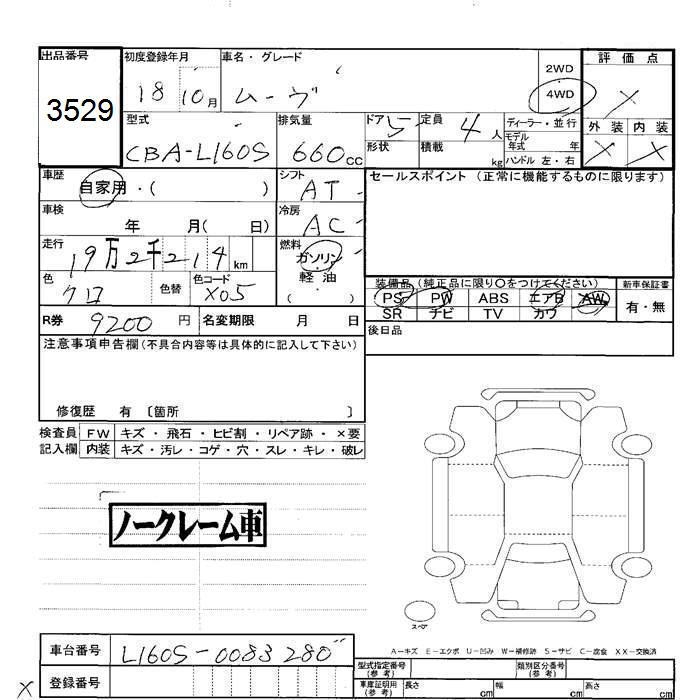 出品番号 3529
初度登録年月 18 10月
車名・グレード ムーヴ
2WD
4WD
評価点 ×
外装 内装
× ×
型式 CBA-L160S
排気量 660cc
ドア 5
形状
定員 4人
積載 kg
ディーラー・並行
モデル年式 年
ハンドル 左・右
車歴 自家用・( )
シフト AT
セールスポイント (正常に機能するものに限ります)
車検 年 月( 日)
冷房 AC
走行 19万2千214km
燃料 ガソリン
軽・油
( ・ )
色 クロ 色替
色コード X05
装備品(純正品に限り〇をつけてください) 新車保証書
PS PW ABS エアB AW 有・無
SR ナビ TV カワ
R券 9200円 名変期限 月 日
後日品
注意事項申告欄(不具合内容等は具体的に記入して下さい)
修復歴 有 〔箇所 〕
検査員 FW キズ・飛石・ヒビ割・リペア跡・×要
記入欄 内装 キズ・汚レ・コゲ・穴・スレ・キレ・破レ
ノークレーム車
スペア
A-キズ E-エクボ U-凹み W-補修跡 S-サビ C-腐食 XX-交換済
車台番号 L160S-0083280
型式指定番号(参考) 類別区分番号(参考)
× 登録番号
車庫証明用(参考) 長さ cm 幅 cm 高さ cm